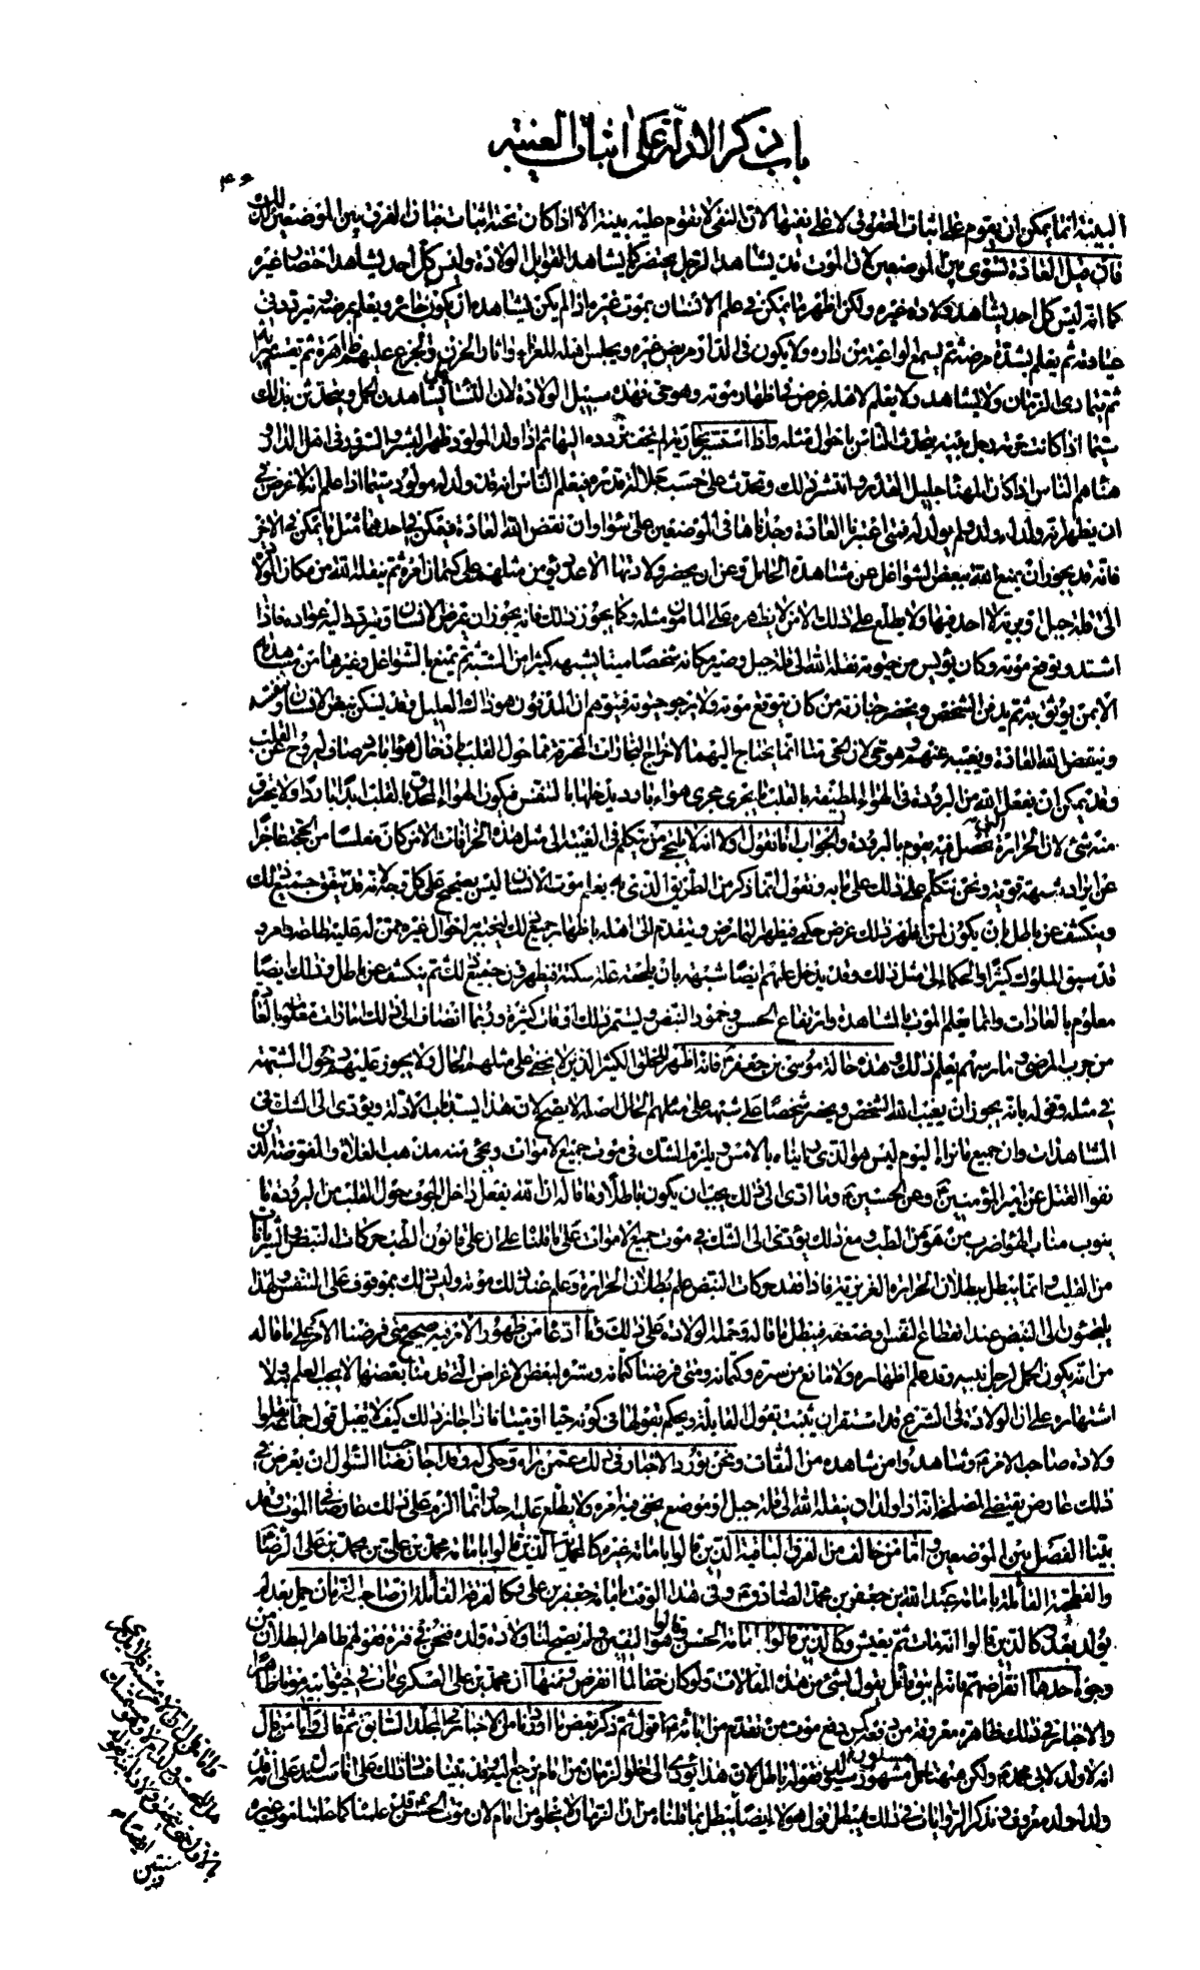 باب ذكر الادلة على اثبات الغيبة
۴۶
البينة انما يمكن ان يقوم على اثبات الحقوق لا على نفيها لان النفى لا تقوم عليه بينة الا اذا كان تحته اثبات فبان الفرق بين الموضعين لذلك
فان قيل العادة تسوى بين الموضعين لان الموت قد يشاهد الرجل يحتضر كما يشاهد القوابل الولادة وليس كل احد يشاهد احتضار غيره
كما انه ليس كل احد يشاهد ولادة غيره ولكن اظهر ما يمكن في علم الانسان بموت غيره اذا لم يكن يشاهده ان يكون جاره ويعلم بمرضه يتردد في
عيادته ثم يعلم بشدة مرضه ثم يسمع الواعية من داره ولا يكون في الدار مريض غيره ويجلس اهله للعزاء واثار الحزن والجزع عليهم ظاهرة ثم يقسم ميراثه
ثم يتمادى الزمان ولا يشاهد ولا يعلم لاهله غرض في اظهار موته وهو حي فهذه سبيل الولادة لان النساء يشاهدن الحمل ويتحدثن بذلك
سيما اذا كانت حرمة رجل نبيه يتحدث الناس باحوال مثله واذا استسر بجارية لم يخف تردده اليها ثم اذا ولد المولود ظهر البشر والسرور في اهل الدار و
هناهم الناس اذا كان المهنا جليل القدر وانتشر ذلك وتحدث على حسب جلالة قدره فيعلم الناس انه قد ولد له مولود سيما اذا علم انه لا غرض في
ان يظهر انه ولد له ولد ولم يولد له فمتى اعتبرنا العادة وجدناها في الموضعين على سواء وان نقض الله العادة فيمكن في احدهما مثل ما يمكن في الاخر
فانه قد يجوز ان يمنع الله ببعض الشواغل عن مشاهدة الحامل وعن ان يحضر ولادتها الا عدد يؤمن مثلهم على كتمان امره ثم ينقله الله من مكان الولادة
الى قلة جبل او برية لا احد فيها ولا يطلع على ذلك الا من لا يظهره على المامون مثله وكما يجوز ذلك فانه يجوز ان يمرض الانسان ويتردد اليه عواده فاذا
اشتد وتوقع موته وكان يؤيس من حيوته نقله الله الى قلة جبل وصير مكانه شخصا ميتا يشبهه كثيرا من الشبه ثم يمنع بالشواغل وغيرها من مشاهدته
الا لمن يوثق به ثم يدفن الشخص ويحضر جنازته من كان يتوقع موته ولا يرجو حيوته فيتوهم ان المدفون هو ذاك العليل وقد يسكن نبض الانسان وتنفسه
وينقض الله العادة ويغيبه عنهم وهو حي لان الحي منا انما يحتاج اليهما لاخراج البخارات المحترقة مما حول القلب بادخال هواء بارد صاف ليروح عن القلب
وقد يمكن ان يفعل الله من البرودة في الهواء المطيفة بالقلب ما يجرى مجرى هواء بارد يدخلها بالتنفس فيكون الهواء المحدق بالقلب ابدا باردا ولا يحترق
منه شيء لان الحرارة التي تحصل فيه يقوم بالبرودة والجواب انا نقول اولا انه لا يلتجئ من يتكلم في الغيبة الى مثل هذه الخرافات الا من كان مفلسا من الحجة عاجزا
عن ايراد شبهة قوية ونحن نتكلم على ذلك على ما به ونقول ان ما ذكر من الطريق الذي به يعلم موت الانسان ليس بصحيح على كل وجه لانه قد يتفق جميع ذلك
وينكشف عن باطل بان يكون لمن اظهر ذلك غرض حكمي فيظهر التمارض ويتقدم الى اهله باظهار جميع ذلك ليختبر به احوال غيره ممن له عليه طاعة وامر و
قد سبق الملوك كثيرا والحكماء الى مثل ذلك وقد يدخل عليهم ايضا شبهة بان يلحقه علة سكتة فيظهرون جميع ذلك ثم ينكشف عن باطل وذلك ايضا
معلوم بالعادات وانما يعلم الموت بالمشاهدة وارتفاع الحس وخمود النبض ويستمر ذلك اوقات كثيرة وربما انضاف الى ذلك امارات معلومة بالعادة
من جرب المرضى ومارسهم يعلم ذلك وهذه حالة موسى بن جعفر ع فانه اظهر للخلق الكثير الذين لا يخفى على مثلهم الحال ولا يجوز عليهم دخول الشبهة
في مثله وقوله بانه يجوز ان يغيب الله الشخص ويحضر شخصا على شبهه على مثلهم الحال اصله لا يصح لان هذا يسد باب الادلة ويؤدى الى الشك في
المشاهدات وان جميع ما نراه اليوم ليس هو الذي رأيناه بالامس ويلزم الشك في موت جميع الاموات ويجيء منه مذهب الغلاة والمفوضة الذين
نفوا القتل عن امير المؤمنين ع وعن الحسين ع وما ادى الى ذلك يجب ان يكون باطلا وما قاله ان الله يفعل داخل الجوف حول القلب من البرودة ما
ينوب مناب الهواء ضرب من هوس الطب ومع ذلك يؤدى الى الشك في موت جميع الاموات على ما قلناه على ان على قانون الطب حركات النبض والشريانات
من القلب وانما يبطل ببطلان الحرارة الغريزية فاذا فقد حركات النبض علم بطلان الحرارة وعلم عند ذلك موته وليس ذلك بموقوف على التنفس ولهذا
يلتجئون الى النبض عند انقطاع النفس وضعفه فيبطل ما قاله وحمله الولادة على ذلك وما ادعاه من ظهور الامر فيه صحيح متى فرضنا الامر على ما قاله
من انه يكون الحمل لرجل نبيه وقد علم اظهاره ولا مانع من ستره وكتمانه ومتى فرضنا كتمانه وستره لبعض الاغراض التي قدمنا بعضها لا يجب العلم به ولا
اشتهاره على ان الولادة في الشرع قد استقر ان تثبت بقول القابلة ويحكم بقولها في كونه حيا او ميتا فاذا جاز ذلك كيف لا يقبل قول جماعة نقلوا
ولادة صاحب الامر ع وشاهدوا من شاهده من الثقات ونحن نورد الاخبار في ذلك عمن رآه وحكى له وقد اجاز صاحب السؤال ان يعرض في
ذلك عارض يقتضي المصلحة انه اذا ولد ان ينقله الله الى قلة جبل او موضع يخفى فيه امره ولا يطلع عليه احد وانما الزم على ذلك عارضا في الموت وقد
بينا الفصل بين الموضعين واما من خالف من الفرق الباقية الذين قالوا بامامة غيره كالمحمدية الذين قالوا بامامة محمد بن علي بن محمد بن علي الرضا
والفطحية القائلة بامامة عبد الله بن جعفر بن محمد الصادق ع وفي هذا الوقت بامامة جعفر بن علي وكالفرقة القائلة ان صاحب الزمان حمل بعد لم
يولد بعد وكالذين قالوا انه مات ثم يعيش وكالذين قالوا بامامة الحسن ع وقالوا هو اليقين ولم يصح لنا ولادة ولده فنحن في فترة فقولهم ظاهر البطلان من
وجوه احدها انقراضهم فانه لم يبق قائل يقول بشئ من هذه المقالات ولو كان حقا لما انقرض ومنها ان محمد بن علي العسكرى مات في حيوة ابيه موتا ظاهرا
والاخبار في ذلك ظاهرة معروفة من دفعه كمن دفع موت من تقدم من ابائه ع اقول ثم ذكر بعض ما اوردنا من الاخبار في المجلد السابق ثم قال واما من قال
انه لا ولد لابي محمد ع ولكن هنا حمل مشهور مستور سيولد فقوله باطل لان هذا يؤدى الى خلو الزمان من امام يرجع اليه وقد بينا فساد ذلك على انا سندل على انه قد
ولد له ولد معروف ونذكر الروايات في ذلك فيبطل قول هؤلاء ايضا يبطل بما قلناه من ان الزمان لا يخلو من امام لان موت الحسن ع قد علمناه كما علمنا موت غيره